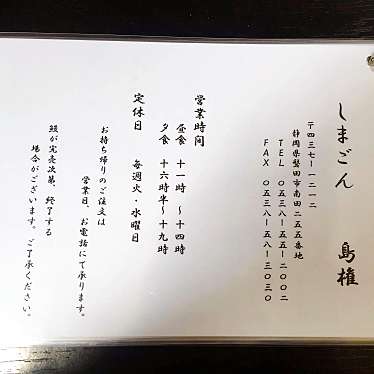 しまごん 島権
〒四三七ー一二一二
静岡県磐田市南田二五五番地
TEL 〇五三八ー五五ー二〇〇二
FAX 〇五三八ー五八ー三〇三〇
営業時間
昼食 十一時 〜十四時
夕食 十六時半〜十九時
定休日 毎週火・水曜日
お持ち帰りのご注文は
営業日、お電話にて承ります。
鰻が完売次第、終了する
場合がございます。ご了承ください。